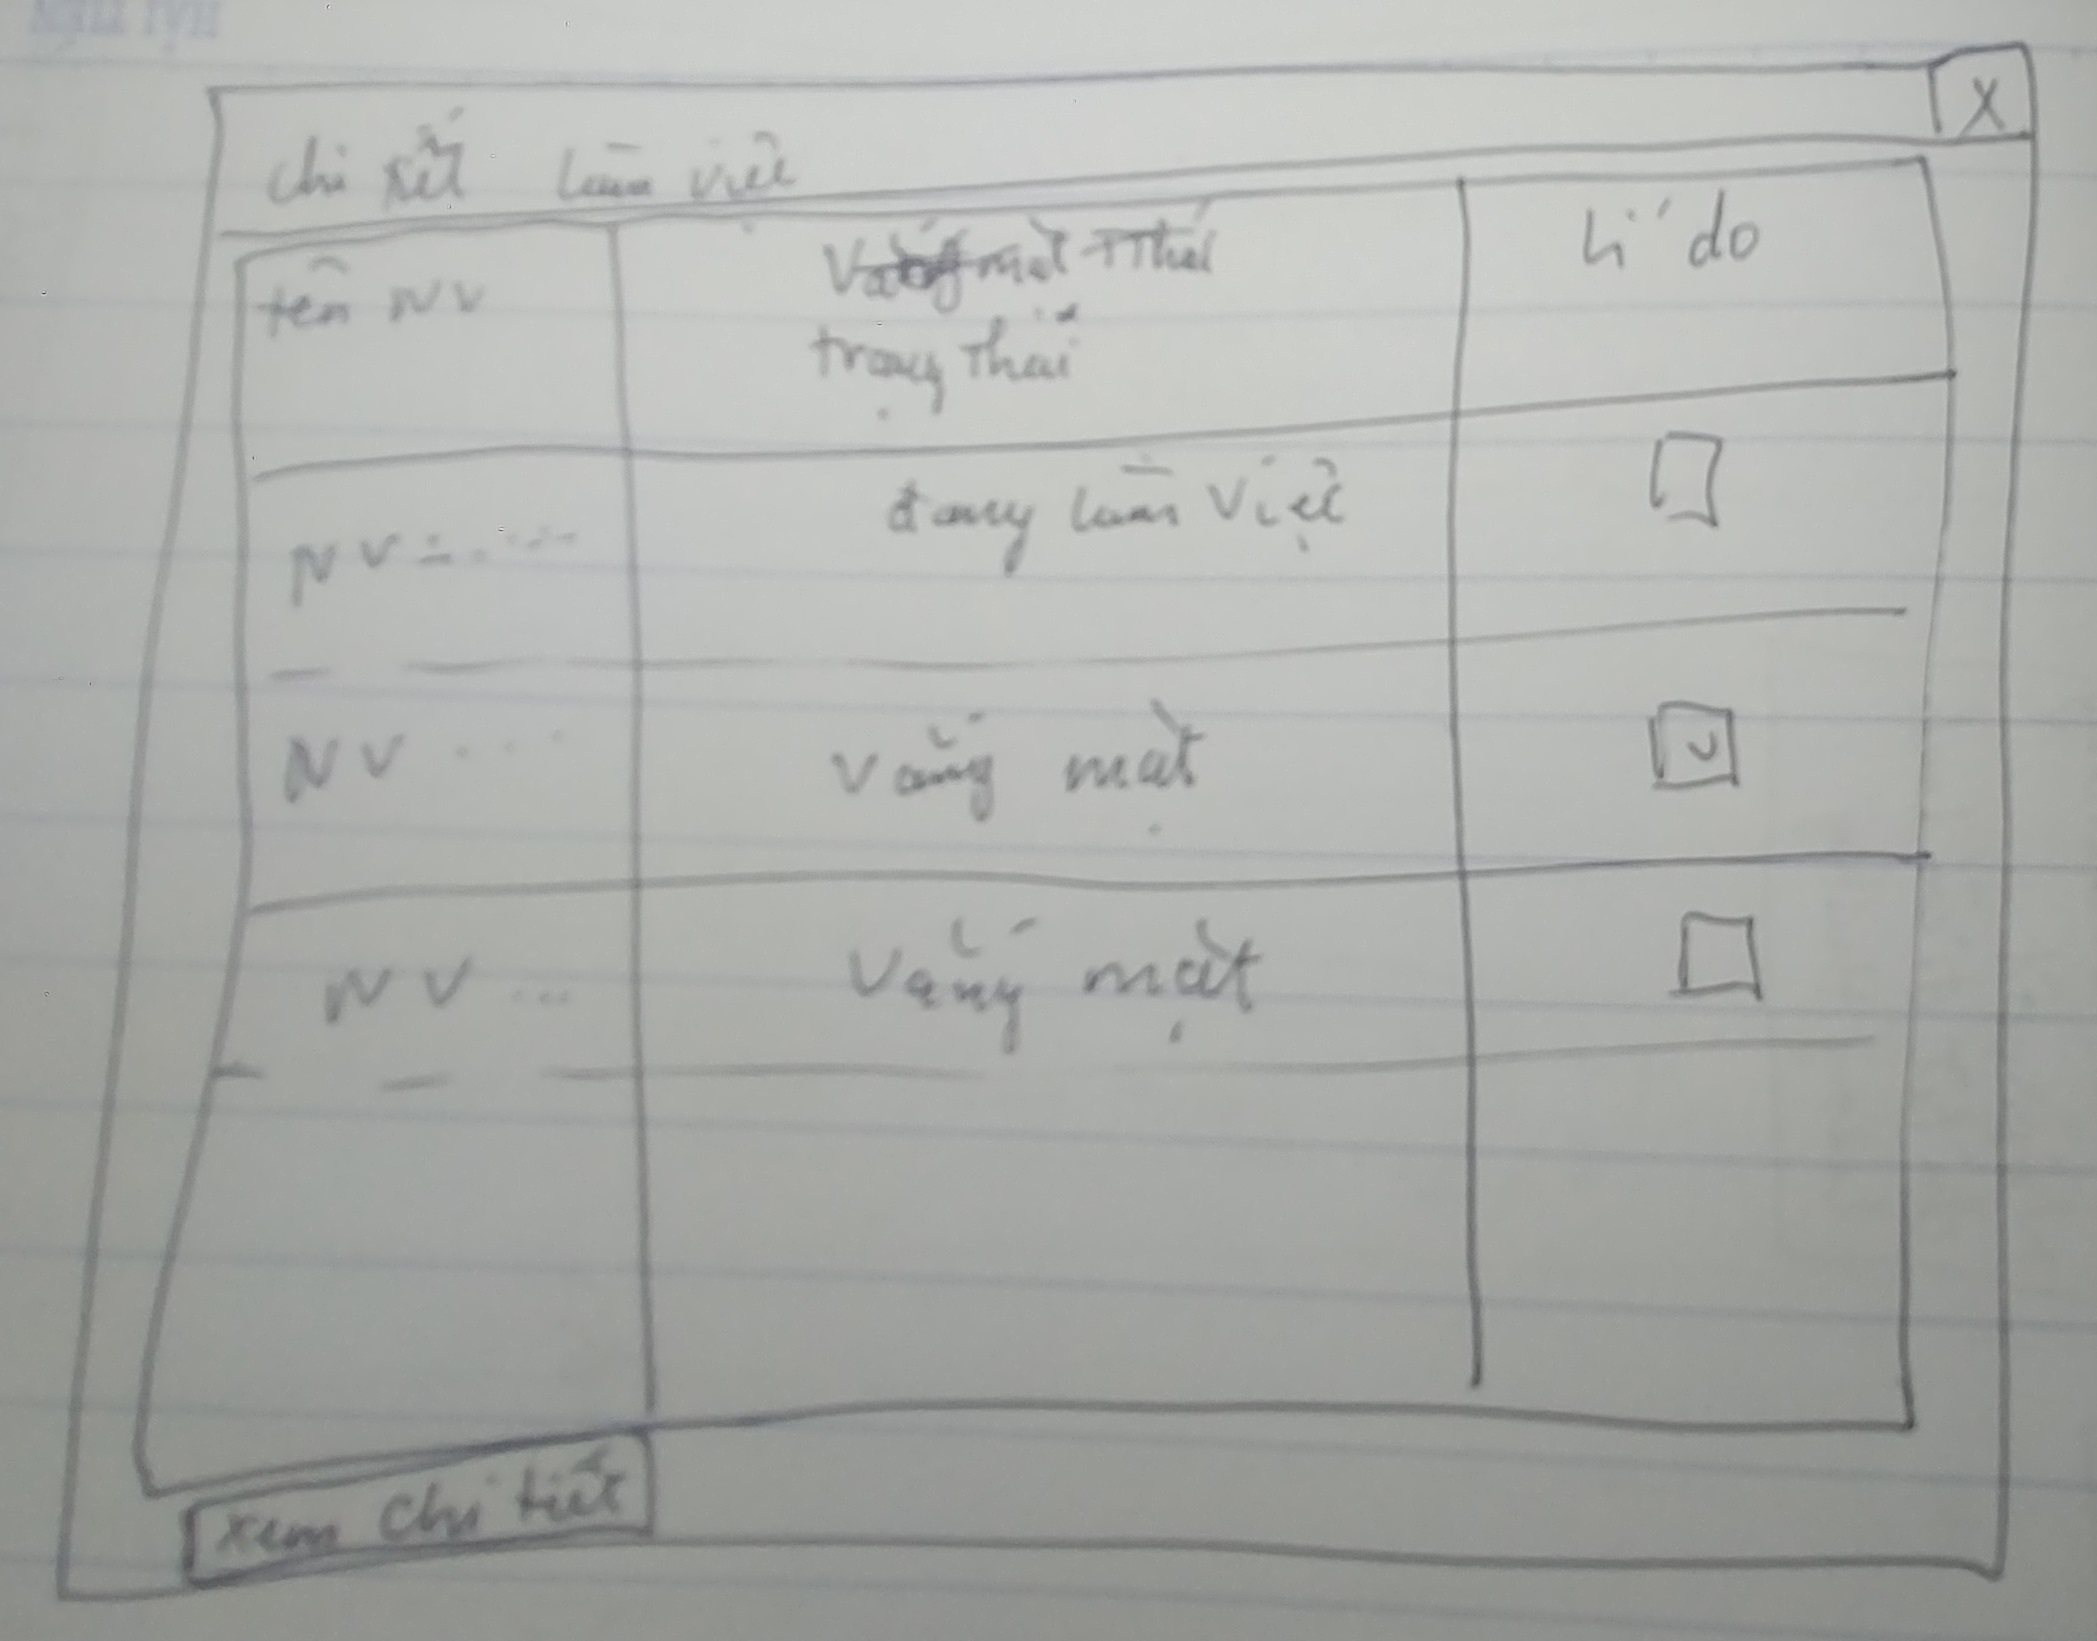 chi tiết làm việc
X
tên NV
trạng thái
Lí do
NV
đang làm việc
NV ...
vắng mặt
NV ...
Vắng mặt
xem chi tiết